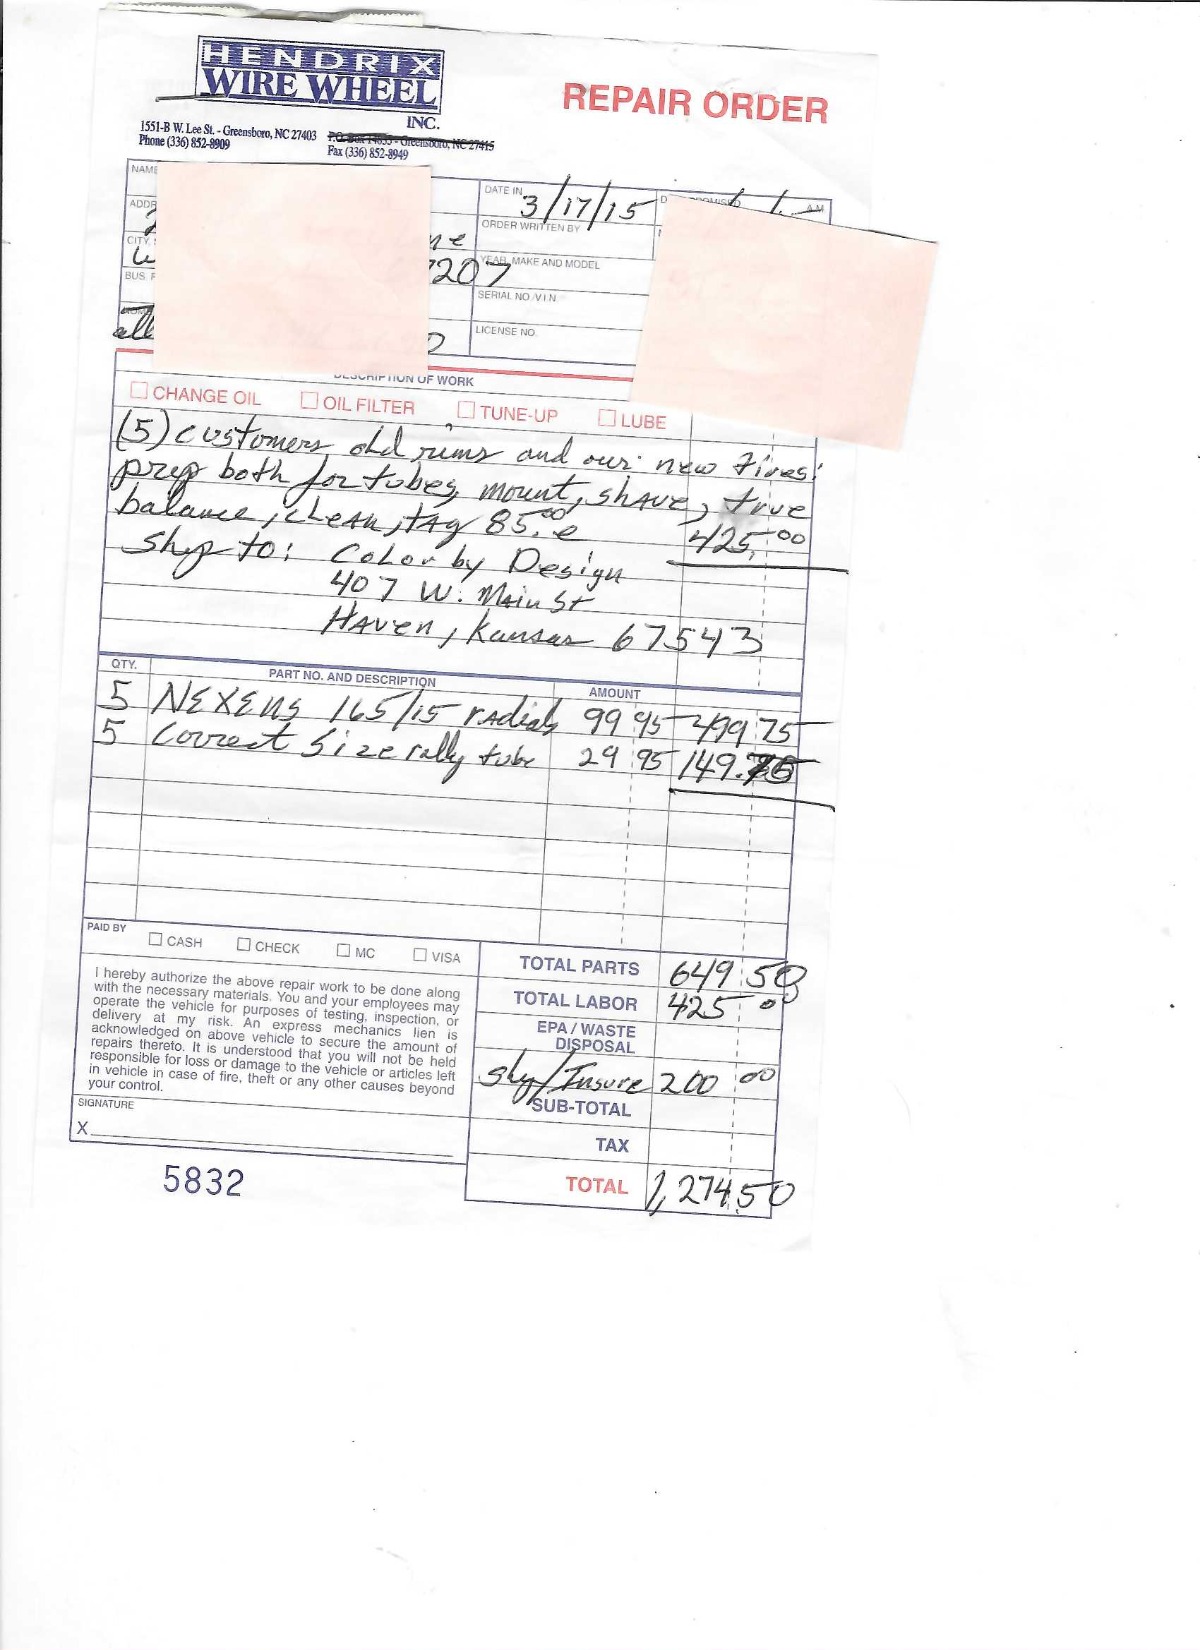 HENDRIX
WIRE WHEEL
INC.
REPAIR ORDER
1551-B W. Lee St. - Greensboro, NC 27403
P.O. Box 14855 - Greensboro, NC 27415
Phone (336) 852-8909
Fax (336) 852-8949
NAME
DATE IN 3/17/15
A.M.
ADDR
ORDER WRITTEN BY
CITY,
207
YEAR, MAKE AND MODEL
BUS. P
SERIAL NO./V.I.N.
all
LICENSE NO.
DESCRIPTION OF WORK
CHANGE OIL OIL FILTER TUNE-UP LUBE
(5) customers old rims and our new tires:
prep both for tubes, mount, shave, true
balance, clean, tag 85.00 e 425.00
Ship to: Color by Design
407 W. Main St
Haven, Kansas 67543
QTY. PART NO. AND DESCRIPTION AMOUNT
5 NEXENS 165/15 radials 99 95 499 75
5 Correct size rally tube 29 95 149.75
PAID BY CASH CHECK MC VISA
I hereby authorize the above repair work to be done along
with the necessary materials. You and your employees may
operate the vehicle for purposes of testing, inspection, or
delivery at my risk. An express mechanics lien is
acknowledged on above vehicle to secure the amount of
repairs thereto. It is understood that you will not be held
responsible for loss or damage to the vehicle or articles left
in vehicle in case of fire, theft or any other causes beyond
your control.
SIGNATURE
X
TOTAL PARTS 649.50
TOTAL LABOR 425 00
EPA / WASTE
DISPOSAL
Shp/Insure 200 00
SUB-TOTAL
TAX
TOTAL 1,274.50
5832